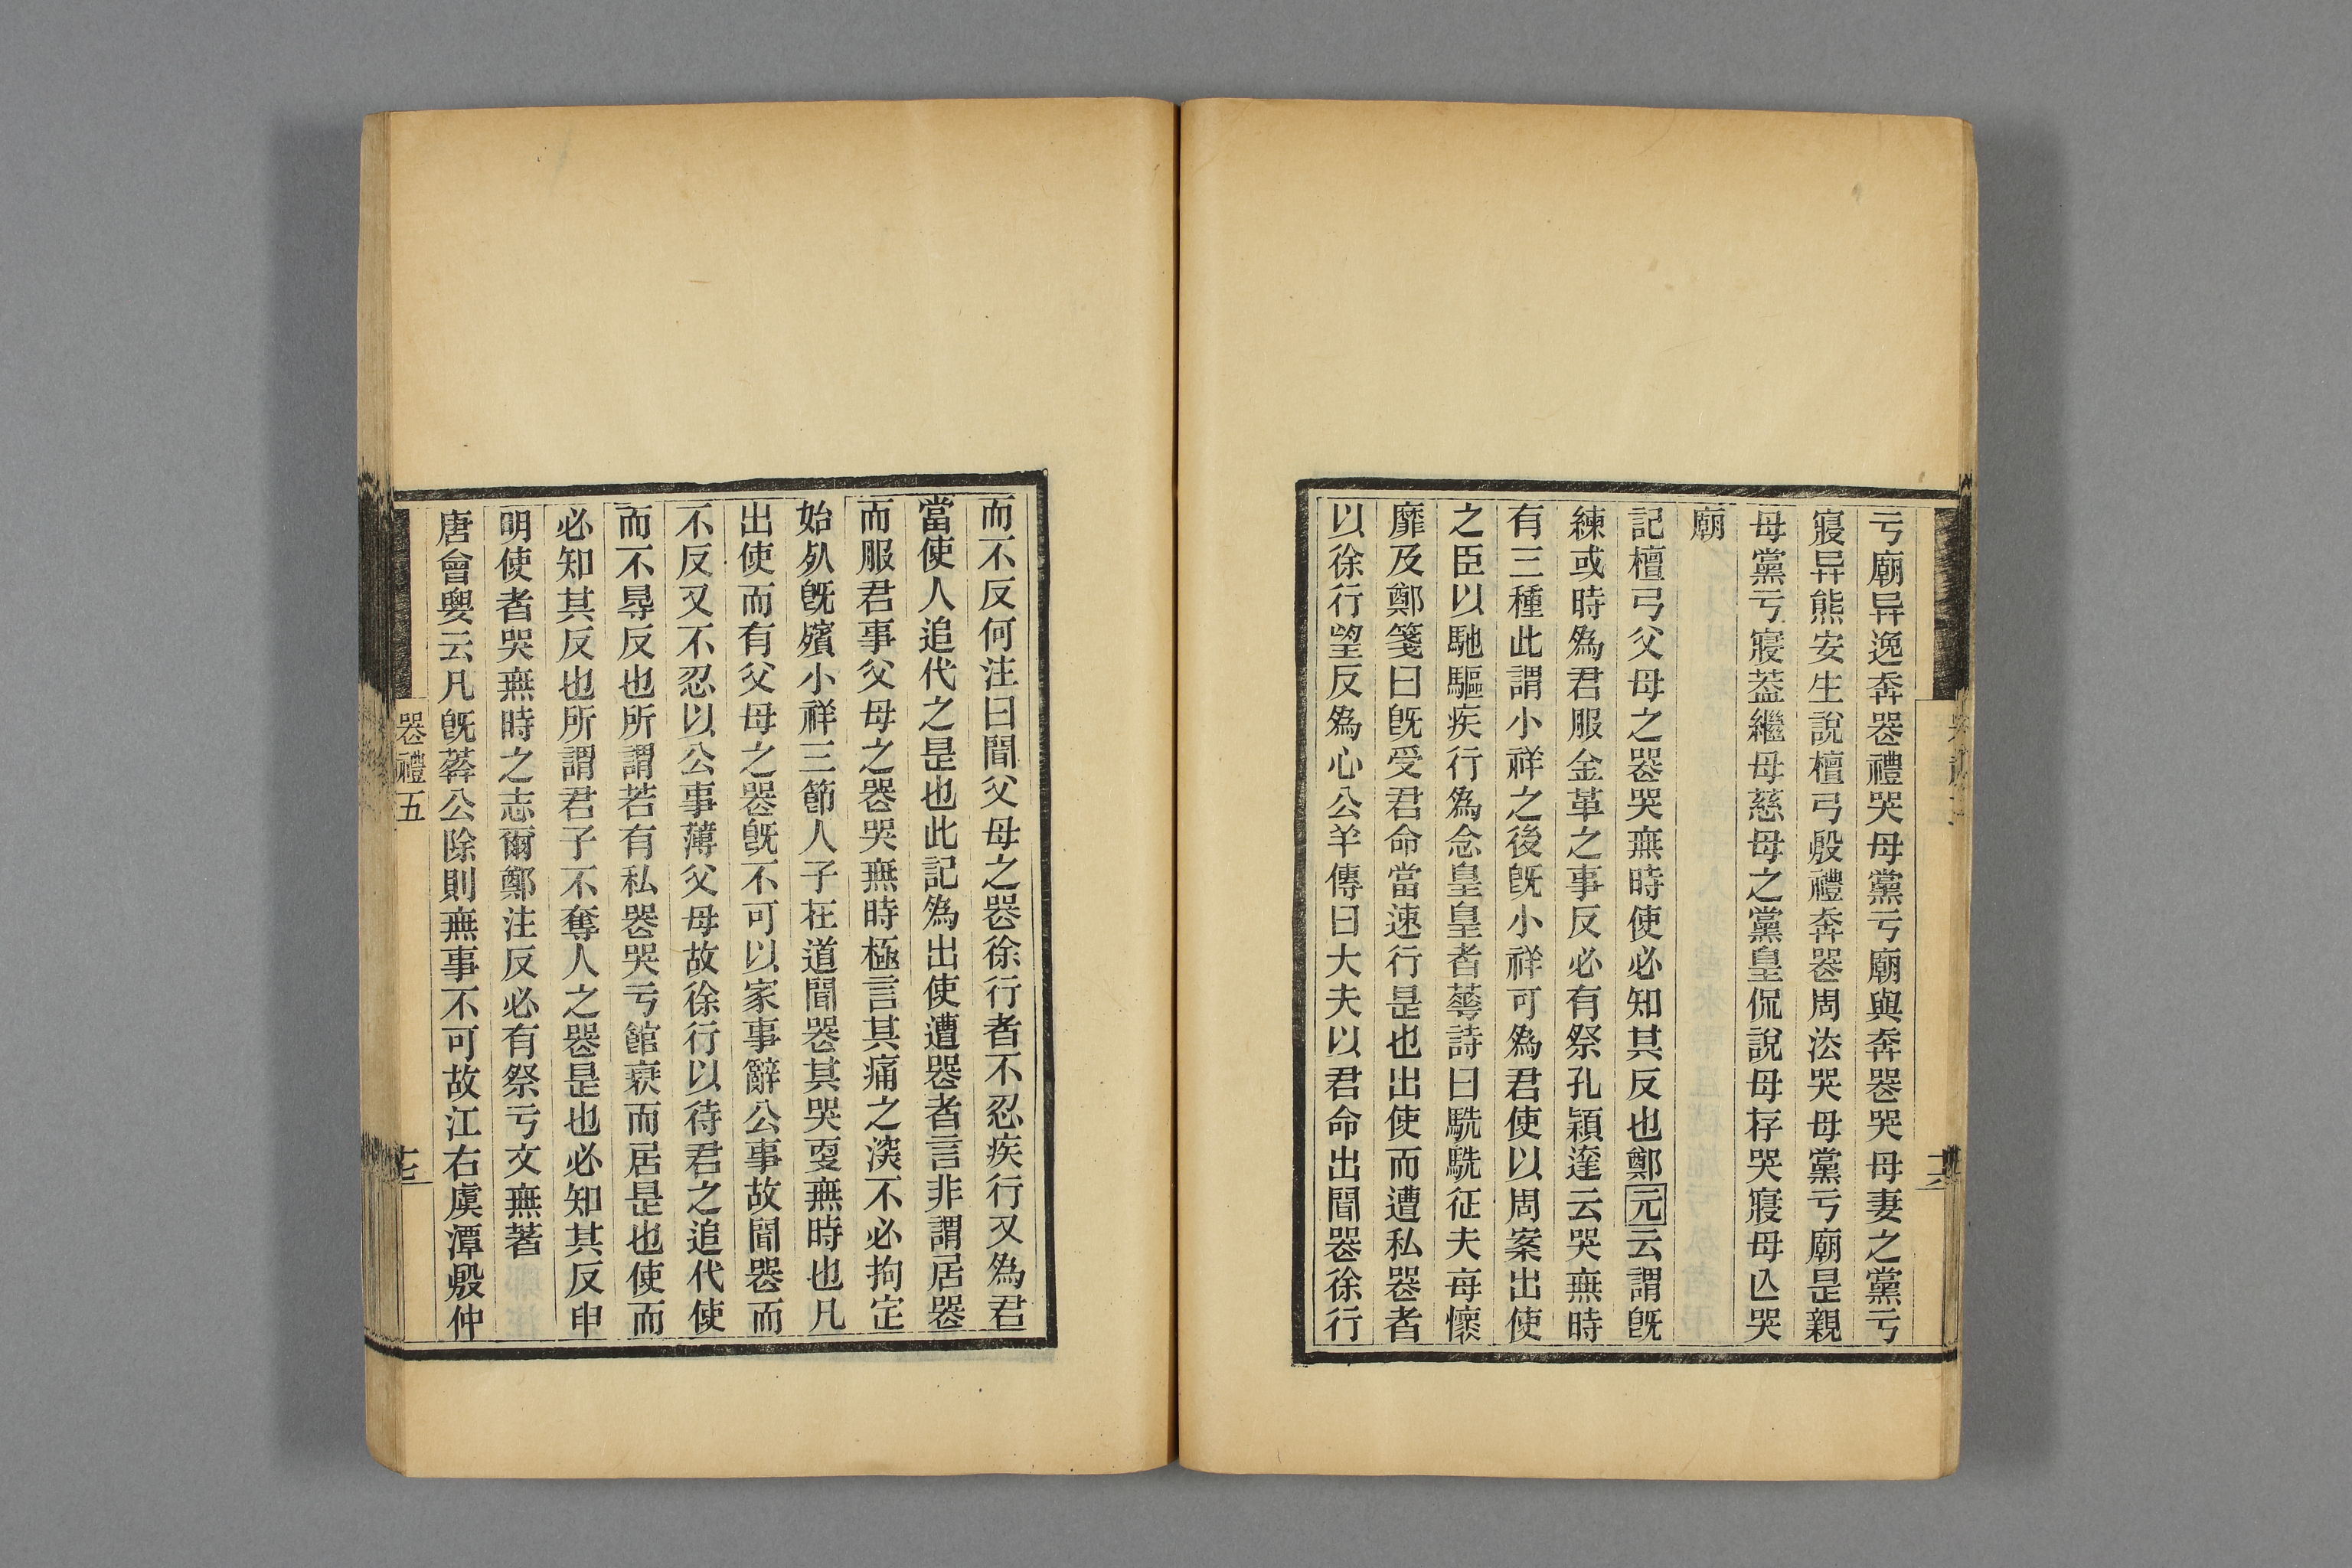 亏廟𢍏逸奔噐禮哭母黨亏廟與奔噐哭母妻之黨亏
寢𢍏熊安生說檀弓殷禮奔噐周㳒哭母黨亏廟是親
母黨亏寢葢繼母慈母之黨皇侃說母存哭寢母亾哭
廟
記檀弓父母之噐哭無時使必知其反也鄭元云謂旣
練或時爲君服金革之事反必有祭孔穎達云哭無時
有三種此謂小祥之後旣小祥可爲君使以周案出使
之臣以馳驅疾行爲念皇皇者蕐詩曰駪駪征夫每懷
靡及鄭箋曰旣受君命當速行是也出使而遭私噐者
以徐行望反爲心公羊傳曰大夫以君命出聞噐徐行
十六
而不反何注曰聞父母之噐徐行者不忍疾行又爲君
當使人追代之是也此記爲出使遭噐者言非謂居噐
而服君事父母之噐哭無時極言其痛之深不必拘定
始𣦸旣殯小祥三節人子在道聞噐其哭叓無時也凡
出使而有父母之噐旣不可以家事辭公事故聞噐而
不反又不忍以公事薄父母故徐行以待君之追代使
而不㝵反也所謂若有私噐哭亏館衰而居是也使而
必知其反也所謂君子不奪人之噐是也必知其反申
明使者哭無時之志爾鄭注反必有祭亏文無著
唐會要云凡旣葬公除則無事不可故江右虞潭殷仲
噐禮五
十七